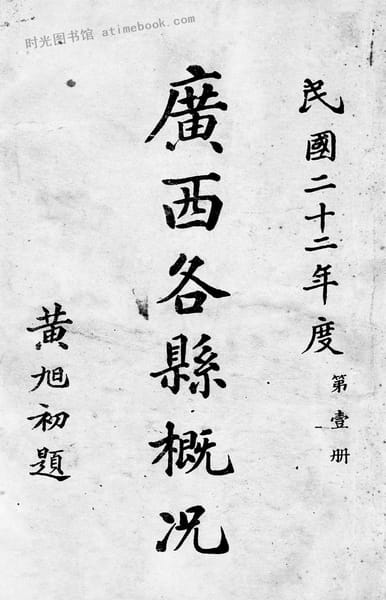 时光图书馆 atimebook.com
民國二十二年度 第壹册
廣西各縣概况
黃旭初題